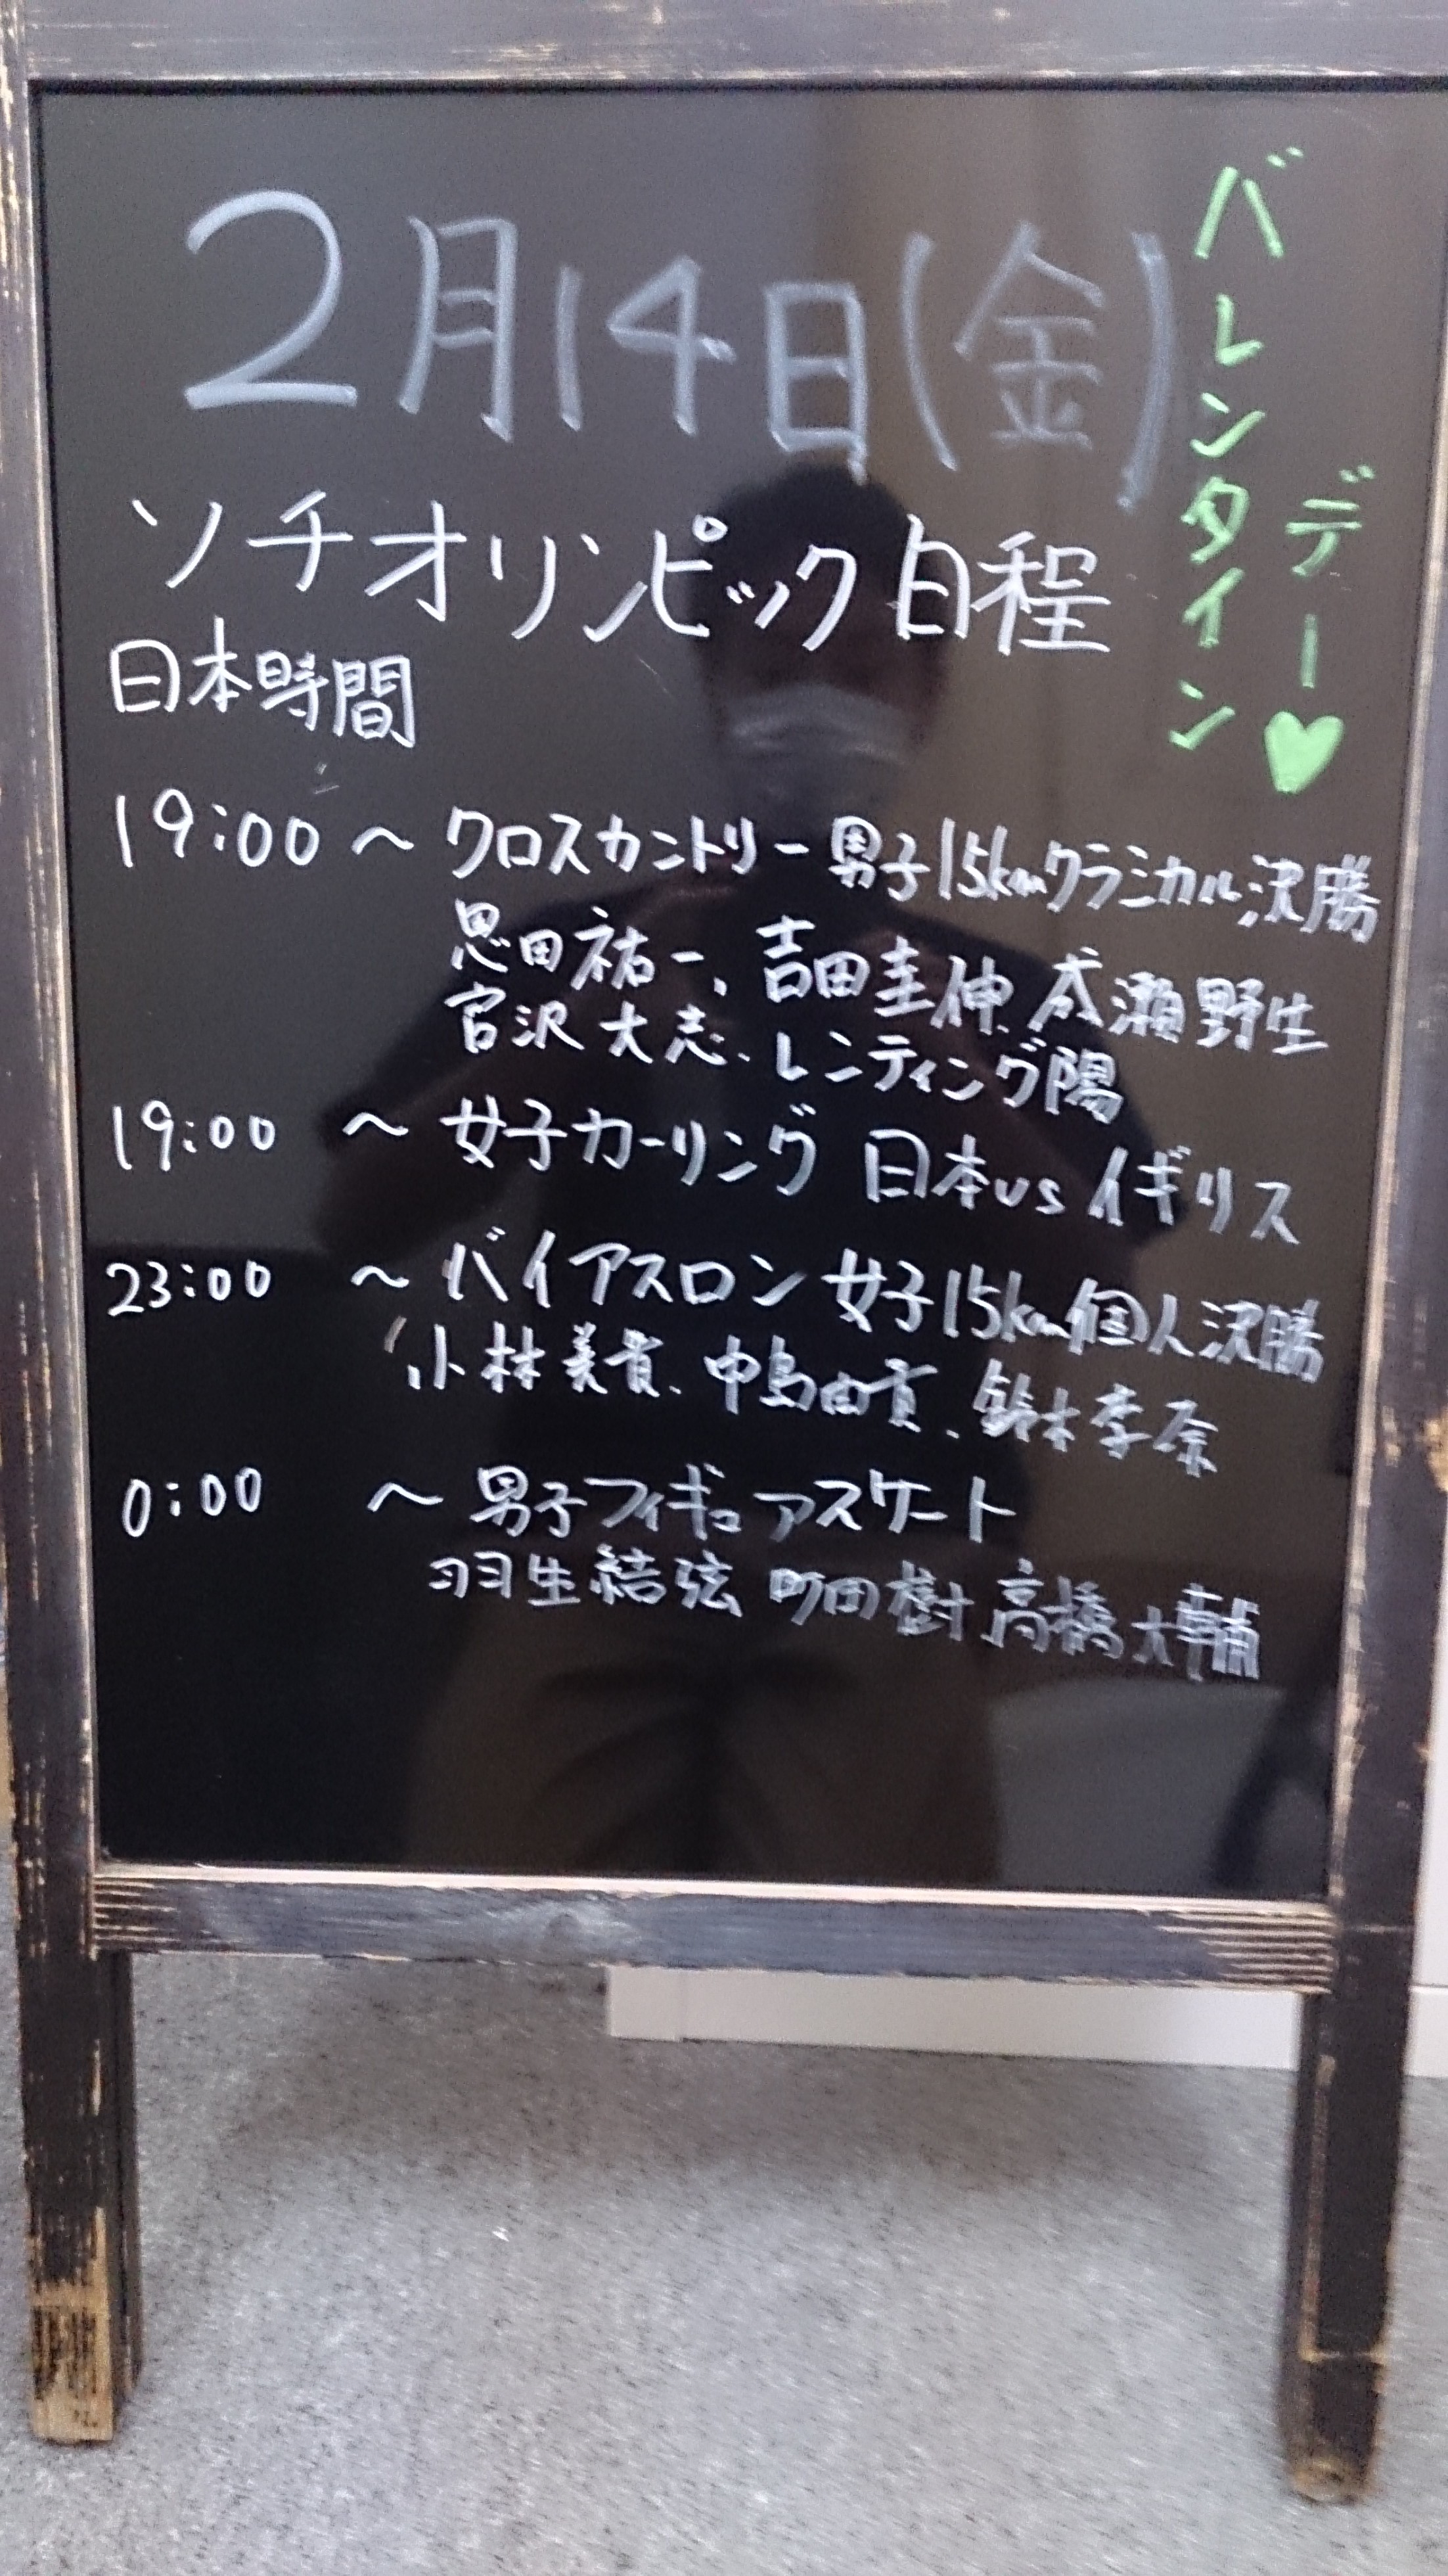 2月14日(金)
バレンタイン
デー♥
ソチオリンピック日程
日本時間
19:00 ～ クロスカントリー男子15kmクラシカル決勝
恩田祐一、吉田圭伸、成瀬野生
宮沢大志、レンティング陽
19:00 ～ 女子カーリング 日本vsイギリス
23:00 ～ バイアスロン女子15km個人決勝
小林美貴、中島由貴、鈴木李奈
0:00 ～ 男子フィギュアスケート
羽生結弦 町田樹 高橋大輔